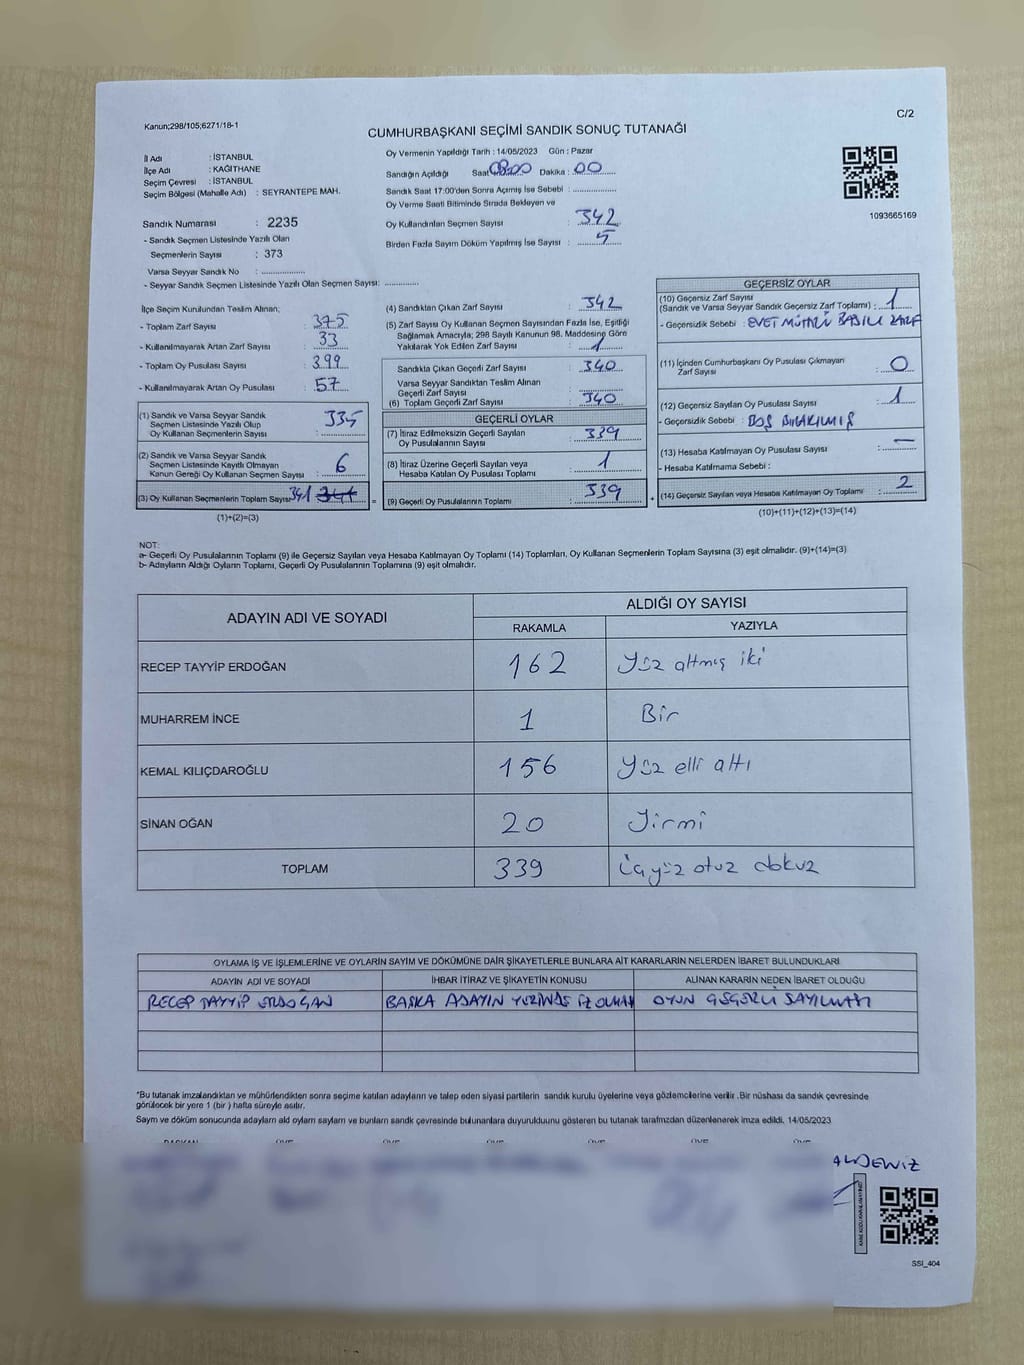 Kanun;298/105;6271/18-1
C/2
CUMHURBAŞKANI SEÇİMİ SANDIK SONUÇ TUTANAĞI
İl Adı : İSTANBUL
İlçe Adı : KAĞITHANE
Seçim Çevresi : İSTANBUL
Seçim Bölgesi (Mahalle Adı) : SEYRANTEPE MAH.
Sandık Numarası : 2235
- Sandık Seçmen Listesinde Yazılı Olan
Seçmenlerin Sayısı : 373
Varsa Seyyar Sandık No : ..............
- Seyyar Sandık Seçmen Listesinde Yazılı Olan Seçmen Sayısı: ..............
Oy Vermenin Yapıldığı Tarih : 14/05/2023 Gün : Pazar
Sandığın Açıldığı Saat 08:00 Dakika : 00
Sandık Saat 17:00'den Sonra Açımış İse Sebebi : ..............
Oy Verme Saati Bitiminde Sırada Bekleyen ve
Oy Kullandırılan Seçmen Sayısı : 342
Birden Fazla Sayım Döküm Yapılmış İse Sayısı : 5
1093665169
İlçe Seçim Kurulundan Teslim Alınan;
- Toplam Zarf Sayısı : 375
- Kullanılmayarak Artan Zarf Sayısı : 33
- Toplam Oy Pusulası Sayısı : 399
- Kullanılmayarak Artan Oy Pusulası : 57
(1) Sandık ve Varsa Seyyar Sandık
Seçmen Listesinde Yazılı Olup
Oy Kullanan Seçmenlerin Sayısı : 335
(2) Sandık ve Varsa Seyyar Sandık
Seçmen Listesinde Kayıtlı Olmayan
Kanun Gereği Oy Kullanan Seçmen Sayısı : 6
(3) Oy Kullanan Seçmenlerin Toplam Sayısı: 341 341 =
(1)+(2)=(3)
(4) Sandıktan Çıkan Zarf Sayısı : 342
(5) Zarf Sayısı Oy Kullanan Seçmen Sayısından Fazla İse, Eşitliği
Sağlamak Amacıyla; 298 Sayılı Kanunun 98. Maddesine Göre
Yakılarak Yok Edilen Zarf Sayısı : 1
Sandıkta Çıkan Geçerli Zarf Sayısı : 340
Varsa Seyyar Sandıktan Teslim Alınan
Geçerli Zarf Sayısı : ..............
(6) Toplam Geçerli Zarf Sayısı : 340
GEÇERLİ OYLAR
(7) İtiraz Edilmeksizin Geçerli Sayılan
Oy Pusulalarının Sayısı : 339
(8) İtiraz Üzerine Geçerli Sayılan veya
Hesaba Katılan Oy Pusulası Toplamı : 1
(9) Geçerli Oy Pusulalarının Toplamı : 339 +
GEÇERSİZ OYLAR
(10) Geçersiz Zarf Sayısı
(Sandık ve Varsa Seyyar Sandık Geçersiz Zarf Toplamı) : 1
- Geçersizlik Sebebi : EVET MÜHRÜ BASILI ZARF
(11) İçinden Cumhurbaşkanı Oy Pusulası Çıkmayan
Zarf Sayısı : 0
(12) Geçersiz Sayılan Oy Pusulası Sayısı : 1
- Geçersizlik Sebebi : BOŞ BIRAKILMIŞ
(13) Hesaba Katılmayan Oy Pusulası Sayısı : —
- Hesaba Katılmama Sebebi :
(14) Geçersiz Sayılan veya Hesaba Katılmayan Oy Toplamı : 2
(10)+(11)+(12)+(13)=(14)
NOT:
a- Geçerli Oy Pusulalarının Toplamı (9) ile Geçersiz Sayılan veya Hesaba Katılmayan Oy Toplamı (14) Toplamları, Oy Kullanan Seçmenlerin Toplam Sayısına (3) eşit olmalıdır. (9)+(14)=(3)
b- Adayların Aldığı Oyların Toplamı, Geçerli Oy Pusulalarının Toplamına (9) eşit olmalıdır.
ADAYIN ADI VE SOYADI
ALDIĞI OY SAYISI
RAKAMLA YAZIYLA
RECEP TAYYİP ERDOĞAN 162 Yüz altmış iki
MUHARREM İNCE 1 Bir
KEMAL KILIÇDAROĞLU 156 Yüz elli altı
SİNAN OĞAN 20 Yirmi
TOPLAM 339 Üçyüz otuz dokuz
OYLAMA İŞ VE İŞLEMLERİNE VE OYLARIN SAYIM VE DÖKÜMÜNE DAİR ŞİKAYETLERLE BUNLARA AİT KARARLARIN NELERDEN İBARET BULUNDUKLARI
ADAYIN ADI VE SOYADI İHBAR İTİRAZ VE ŞİKAYETİN KONUSU ALINAN KARARIN NEDEN İBARET OLDUĞU
RECEP TAYYİP ERDOĞAN BAŞKA ADAYIN YERİNDE İZ OLMASI OYUN GEÇERLİ SAYILMASI
*Bu tutanak imzalandıktan ve mühürlendikten sonra seçime katılan adayların ve talep eden siyasi partilerin sandık kurulu üyelerine veya gözlemcilerine verilir .Bir nüshası da sandık çevresinde
görülecek bir yere 1 (bir ) hafta süreyle asılır.
Sayım ve döküm sonucunda adayların aldı oyların sayların ve bunların sandık çevresinde bulunanlara duyurulduunu gösteren bu tutanak tarafmzdan düzenlenerek imza edildi. 14/05/2023
BAŞKAN ÜYE ÜYE ÜYE ÜYE ÜYE ÜYE
AKDENİZ
SSI_404